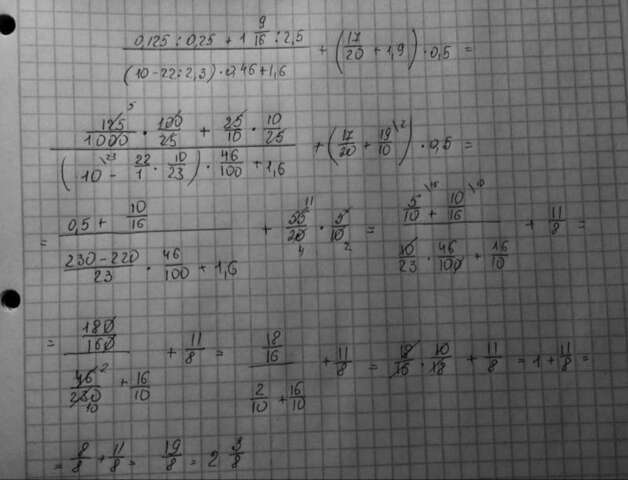 (0,125 : 0,25 + 1 9/16 : 2,5) / ((10 - 22 : 2,3) · 0,46 + 1,6) + (17/20 + 1,9) · 0,5 =
(125/1000 · 100/25 + 25/10 · 10/25) / ((10 - 22/1 · 10/23) · 46/100 + 1,6) + (17/20 + 19/10) · 0,5 =
= (0,5 + 10/16) / ((230 - 220)/23 · 46/100 + 1,6) + 55/20 · 5/10 = (5/10 + 10/16) / (10/23 · 46/100 + 16/10) + 11/8 =
= (180/160) / (46/230 + 16/10) + 11/8 = (18/16) / (2/10 + 16/10) + 11/8 = 18/16 · 10/18 + 11/8 = 1 + 11/8 =
= 8/8 + 11/8 = 19/8 = 2 3/8